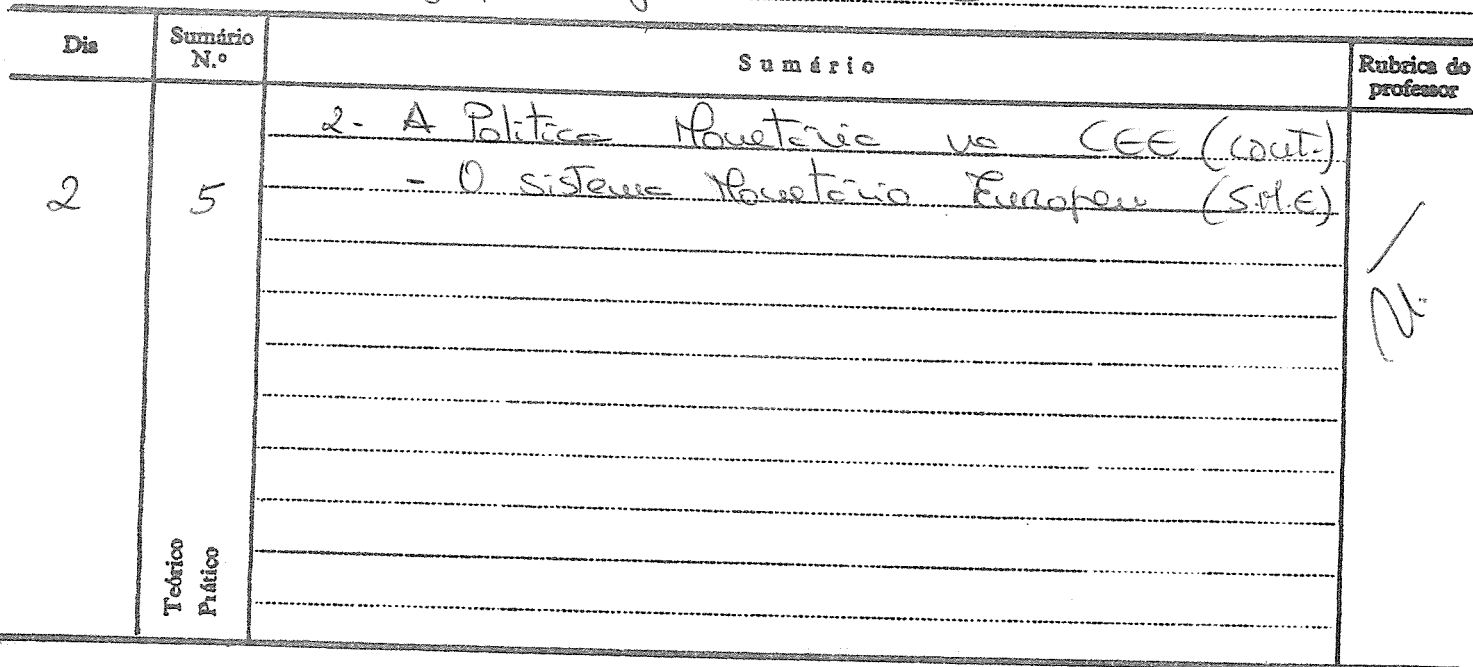 Dia
Sumário N.º
Sumário
Rubrica do professor
2
5
2- A Política Monetária na CEE (cont.)
- O sistema Monetário Europeu (S.M.E)
Teórico
Prático